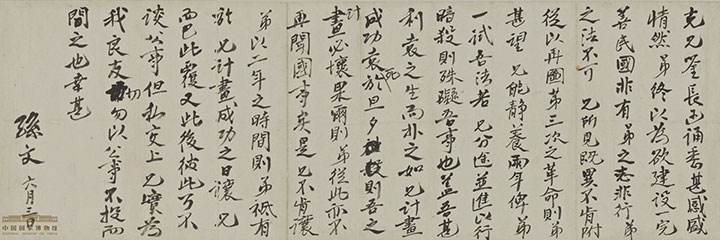 克兄鑒長函誦悉甚感盛
情然弟終以為欲建設完
善民國非有弟之志非行弟
之法不可兄所見既異不肯附
從以再圖第三次之革命則弟
甚望兄能靜養兩年俾弟
一試吾法若兄分途並進以行
暗殺則殊礙吾事也蓋吾甚
利袁之生而扑之如兄計畫
成功袁死於旦夕則吾之計
畫必壞果爾則弟從此亦不
再聞國事矣是兄不肯讓
弟以二年之時間則弟衹有
於兄計畫成功之日讓兄
而已此覆又此後彼此可不
談公事但私交上兄實為
我良友切勿以公事不投而
間之也幸甚
孫文
六月三日
中国国家博物馆
NATIONAL MUSEUM OF CHINA